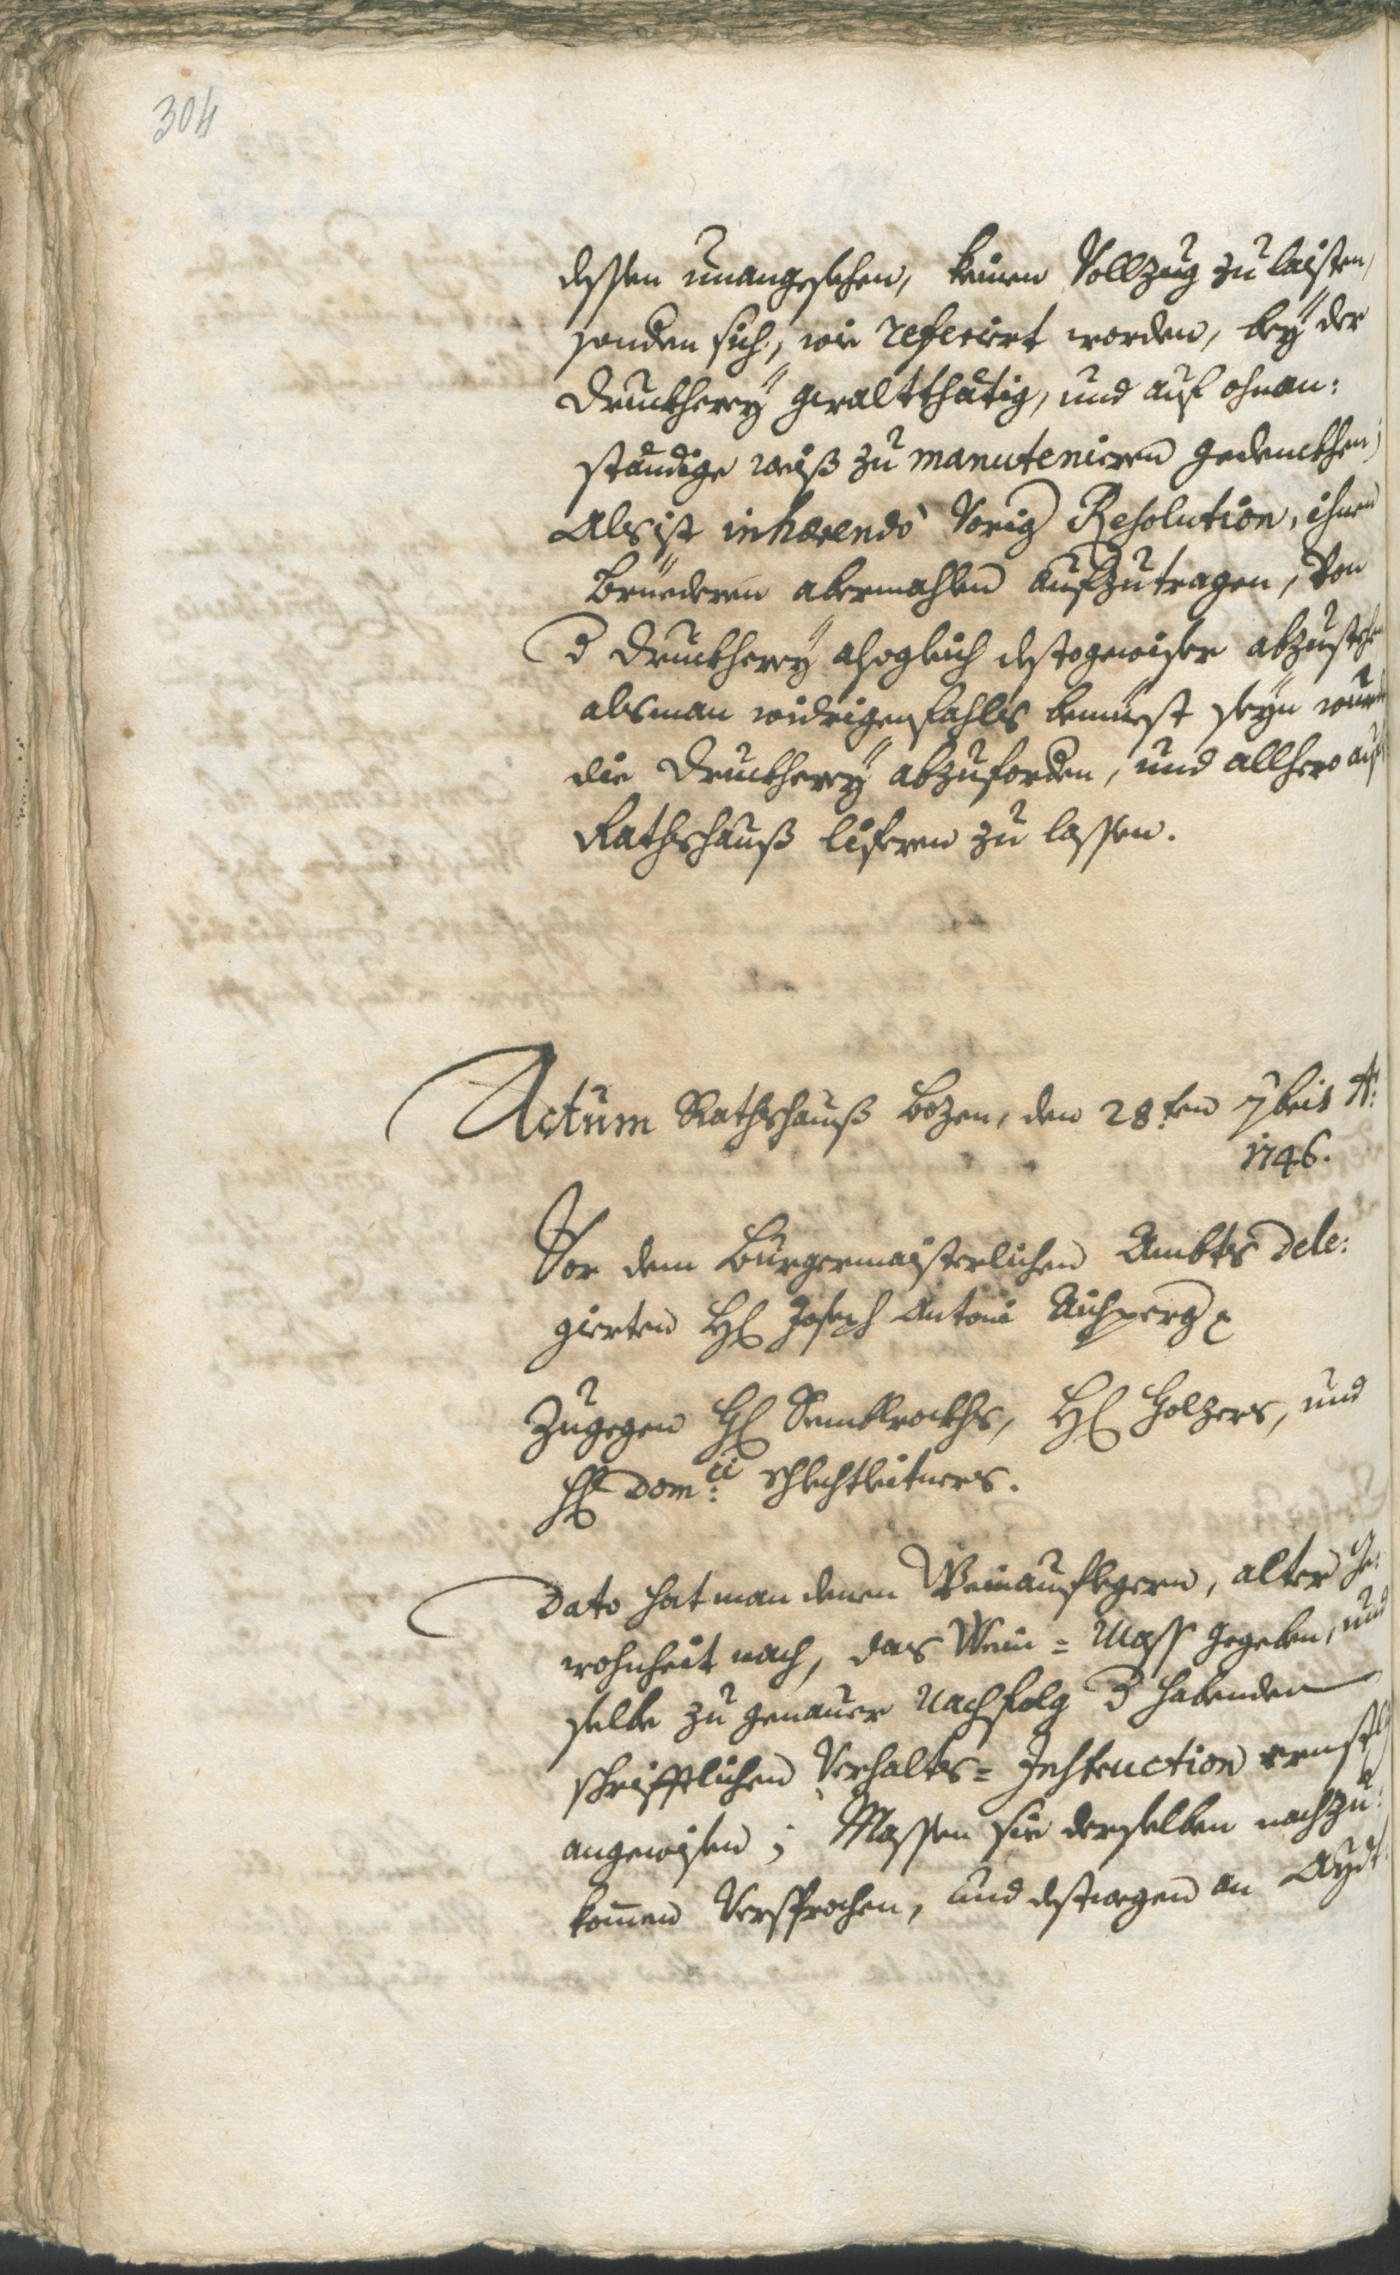 304
dessen unangesehen, keinen Vollzug zu laisten,
sonden sich, wie referirt worden, bey der
Druckherey gwaltthätig, und auf ohnan:
ständige weiß zu manuteniren gedenckhen;
Als ist inhærendo Vorig Resolution, ihnen
Brüederen abermahlen aufzutragen, Von
d Druckherey alsogleich destogewiser abzustehen
als man widrigenfahls bemüest seyn wurde
die Druckherey abzuforden, und allhero aufs
Rathshauß liferen zu lassen.
Actum Rathshauß Bozen, den 28.ten 7bris A:
1746.
Vor dem Burgermaisterlichen Ambts Dele:
gierten H Joseph Antoni
Zugegen H H Holzers, und
H Dom:ci Schlechtleitners.
Dato hat man denen Weinauflegern, alter Ge:
wohnheit nach, das Wein = Mass gegeben, und
selbe zu genauer Nachfolg d habenden
schrifftlichen Verhalts = Instruction ernstl
angewisen; Massen sie derselben nachzu:
komen Versprochen, und destwegen an Aydt